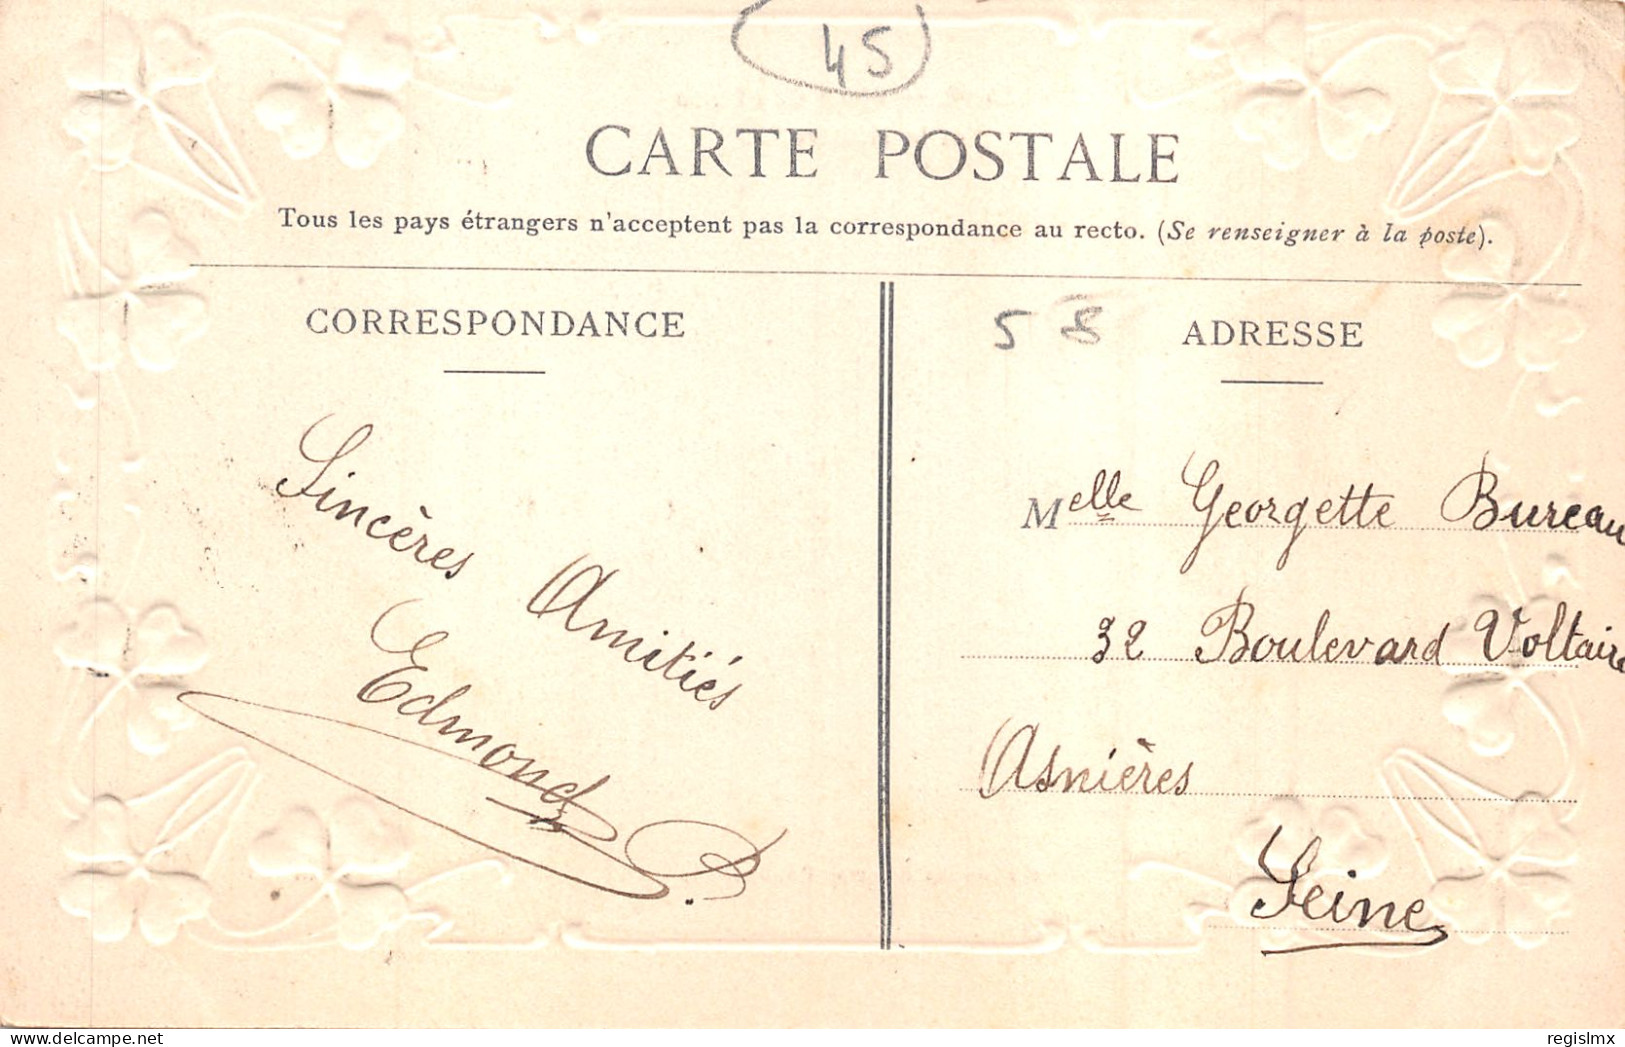 45
CARTE POSTALE
Tous les pays étrangers n'acceptent pas la correspondance au recto. (Se renseigner à la poste).
CORRESPONDANCE
Sincères Amitiés
Edmond
58
ADRESSE
Melle Georgette Bureau
32 Boulevard Voltaire
Asnières
Seine
regislmx